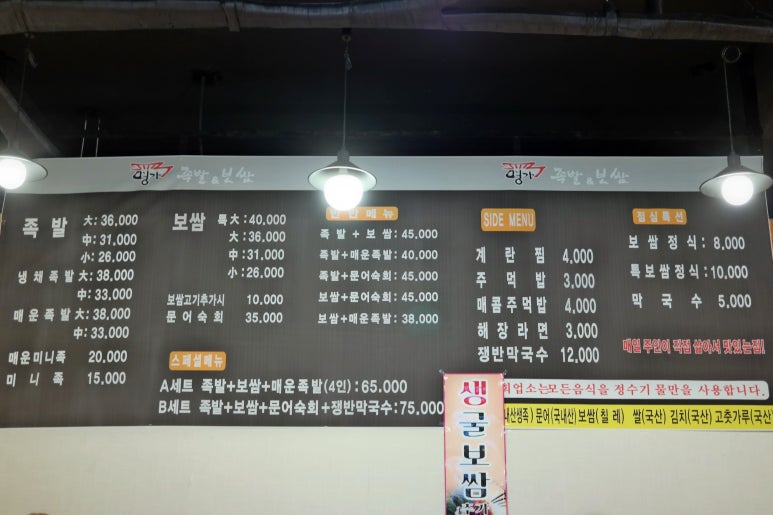 명가 족발&보쌈
명가 족발&보쌈
족발 大: 36,000
中: 31,000
小: 26,000
냉채족발 大: 38,000
中: 33,000
매운족발 大: 38,000
中: 33,000
매운미니족 20,000
미니족 15,000
보쌈 특大: 40,000
大: 36,000
中: 31,000
小: 26,000
보쌈고기추가시 10,000
문어숙회 35,000
반반메뉴
족발+보쌈: 45,000
족발+매운족발: 40,000
족발+문어숙회: 45,000
보쌈+문어숙회: 45,000
보쌈+매운족발: 38,000
스페셜메뉴
A세트 족발+보쌈+매운족발(4인): 65.000
B세트 족발+보쌈+문어숙회+쟁반막국수: 75.000
SIDE MENU
계란찜 4,000
주먹밥 3,000
매콤주먹밥 4,000
해장라면 3,000
쟁반막국수 12,000
점심특선
보쌈정식: 8,000
특보쌈정식: 10,000
막국수 5,000
매일 주인이 직접 삶아서 맛있는집!
업소는모든음식을 정수기 물만을 사용합니다.
내산생족) 문어(국내산) 보쌈(칠레) 쌀(국산) 김치(국산) 고춧가루(국산
생굴보쌈